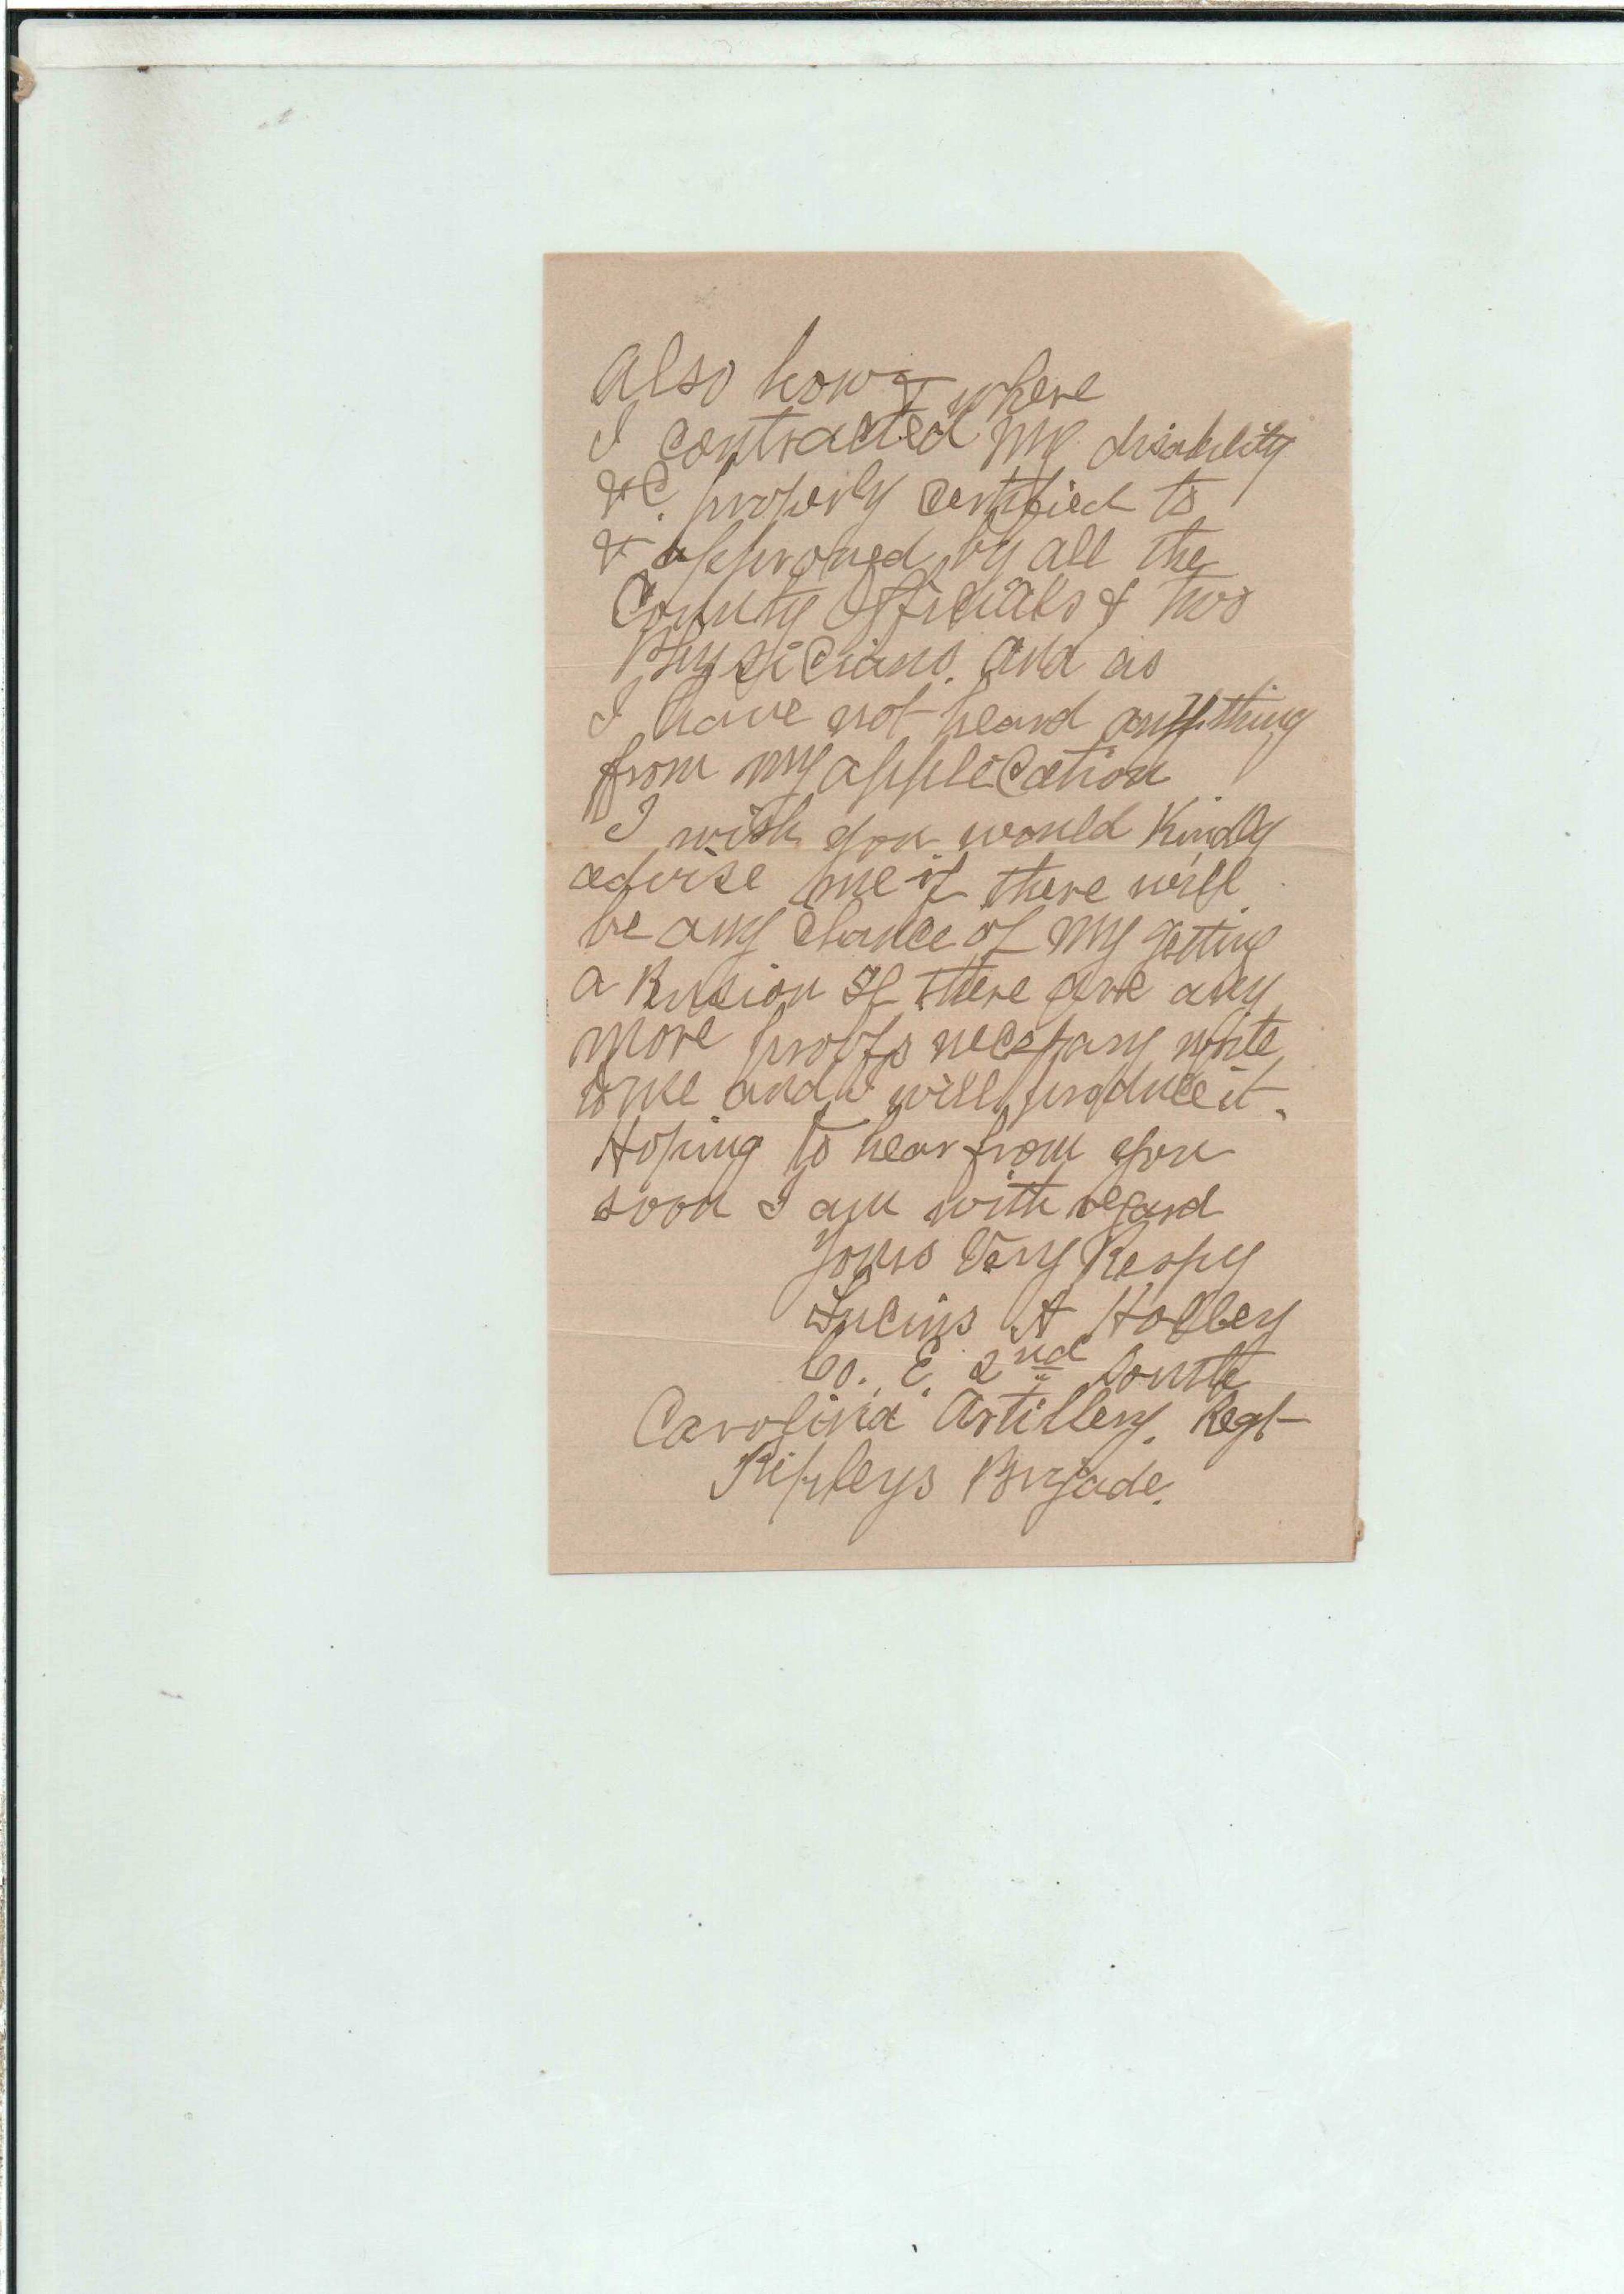 Also how & where
I contracted my disability
&C. properly certified to
& approved by all the
County Officials & two
Physicians. and as
I have not heard anything
from my application
I wish you would Kindly
advise me if there will
be any chance of my getting
a Pension If there are any
more proofs necessary write
to me and I will produce it.
Hoping to hear from you
soon I am with regard
Yours Very Respy
Lucius A Holley
Co. E. 2nd South
Carolina Artillery. Regt
Ripleys Brigade.